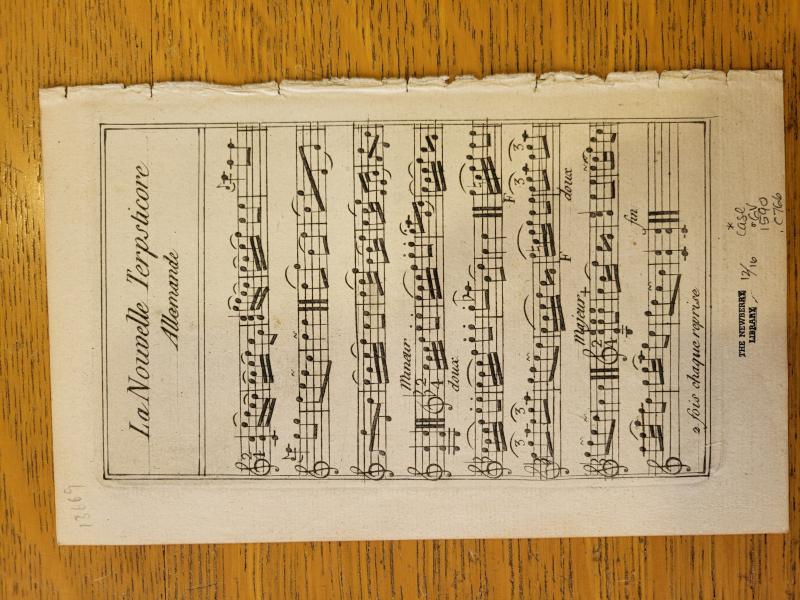 La Nouvelle Terpsticore
Allemande
Mineur
doux
F
3 3 3 3
F doux
Majeur
fin
2 fois chaque reprise
THE NEWBERRY
LIBRARY
12/16
*
Case
oGV
1590
.C766
13669